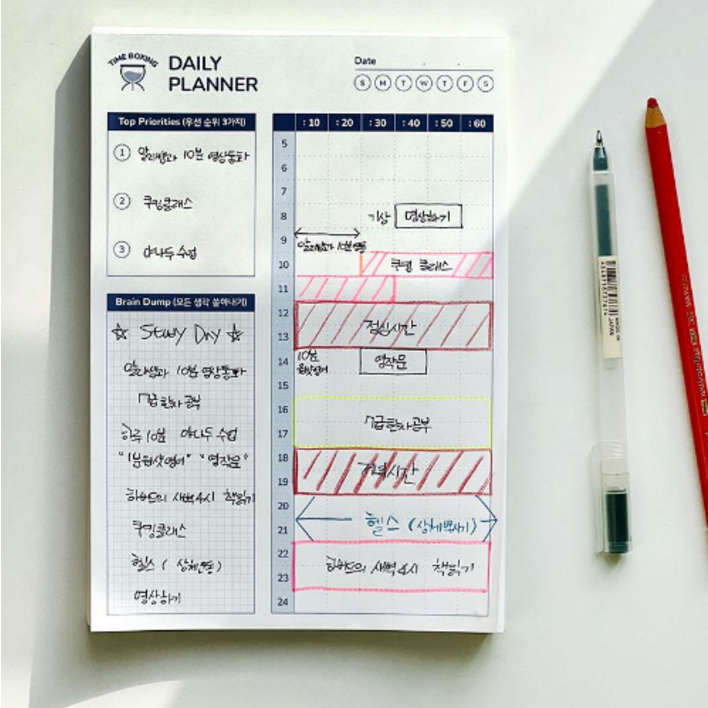 TIME BOXING
DAILY
PLANNER
Date
S M T W T F S
Top Priorities (우선 순위 3가지)
1 알리쌤과 10분 영상통화
2 쿠킹클래스
3 야나두 수업
Brain Dump (모든 생각 쏟아내기)
☆ STUDY DAY ☆
알리쌤과 10분 영상통화
7급 한자 공부
하루 10분 야나두 수업
"1분원샷영어" "영작문"
하버드의 새벽 4시 책읽기
쿠킹클래스
헬스 ( 상체운동 )
명상하기
:10 :20 :30 :40 :50 :60
5
6
7
8 기상 명상하기
9 알리쌤과 10분
10 쿠킹 클래스
11
12
13 점심시간
14 10분 원샷영어 영작문
15
16
17 7급 한자 공부
18 저녁시간
19
20
21 헬스 (상체뿌시기)
22
23 하버드의 새벽 4시 책읽기
24
MADE IN
JAPAN